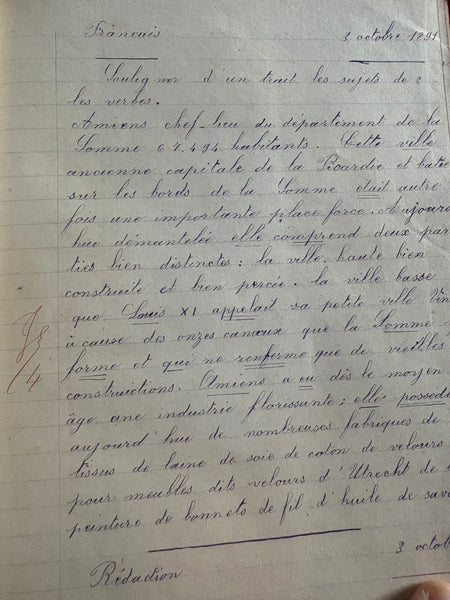 Français 3 octobre 1891
Souligner d'un trait les sujets de 2
les verbes.
Amiens chef-lieu du département de la
Somme 67.494 habitants. Cette ville
ancienne capitale de la Picardie et batie
sur les bords de la Somme etait autre
fois une importante place force. Aujourd
hui démantelée elle comprend deux par
ties bien distinctes : la ville haute bien
construite et bien percée. la ville basse
que Louis XI appelait sa petite ville Ven
à cause des onzes canaux que la Somme y
forme et qui ne renferme que de vieilles
constructions. Amiens a eu dès le moyen
âge une industrie florissante ; elle possède
aujourd'hui de nombreuses fabriques de
tissus de laine de soie de coton de velours
pour meubles dits velours d'Utrecht de
peinture de bonnets de fil d'huile de savo
Rédaction 3 octob